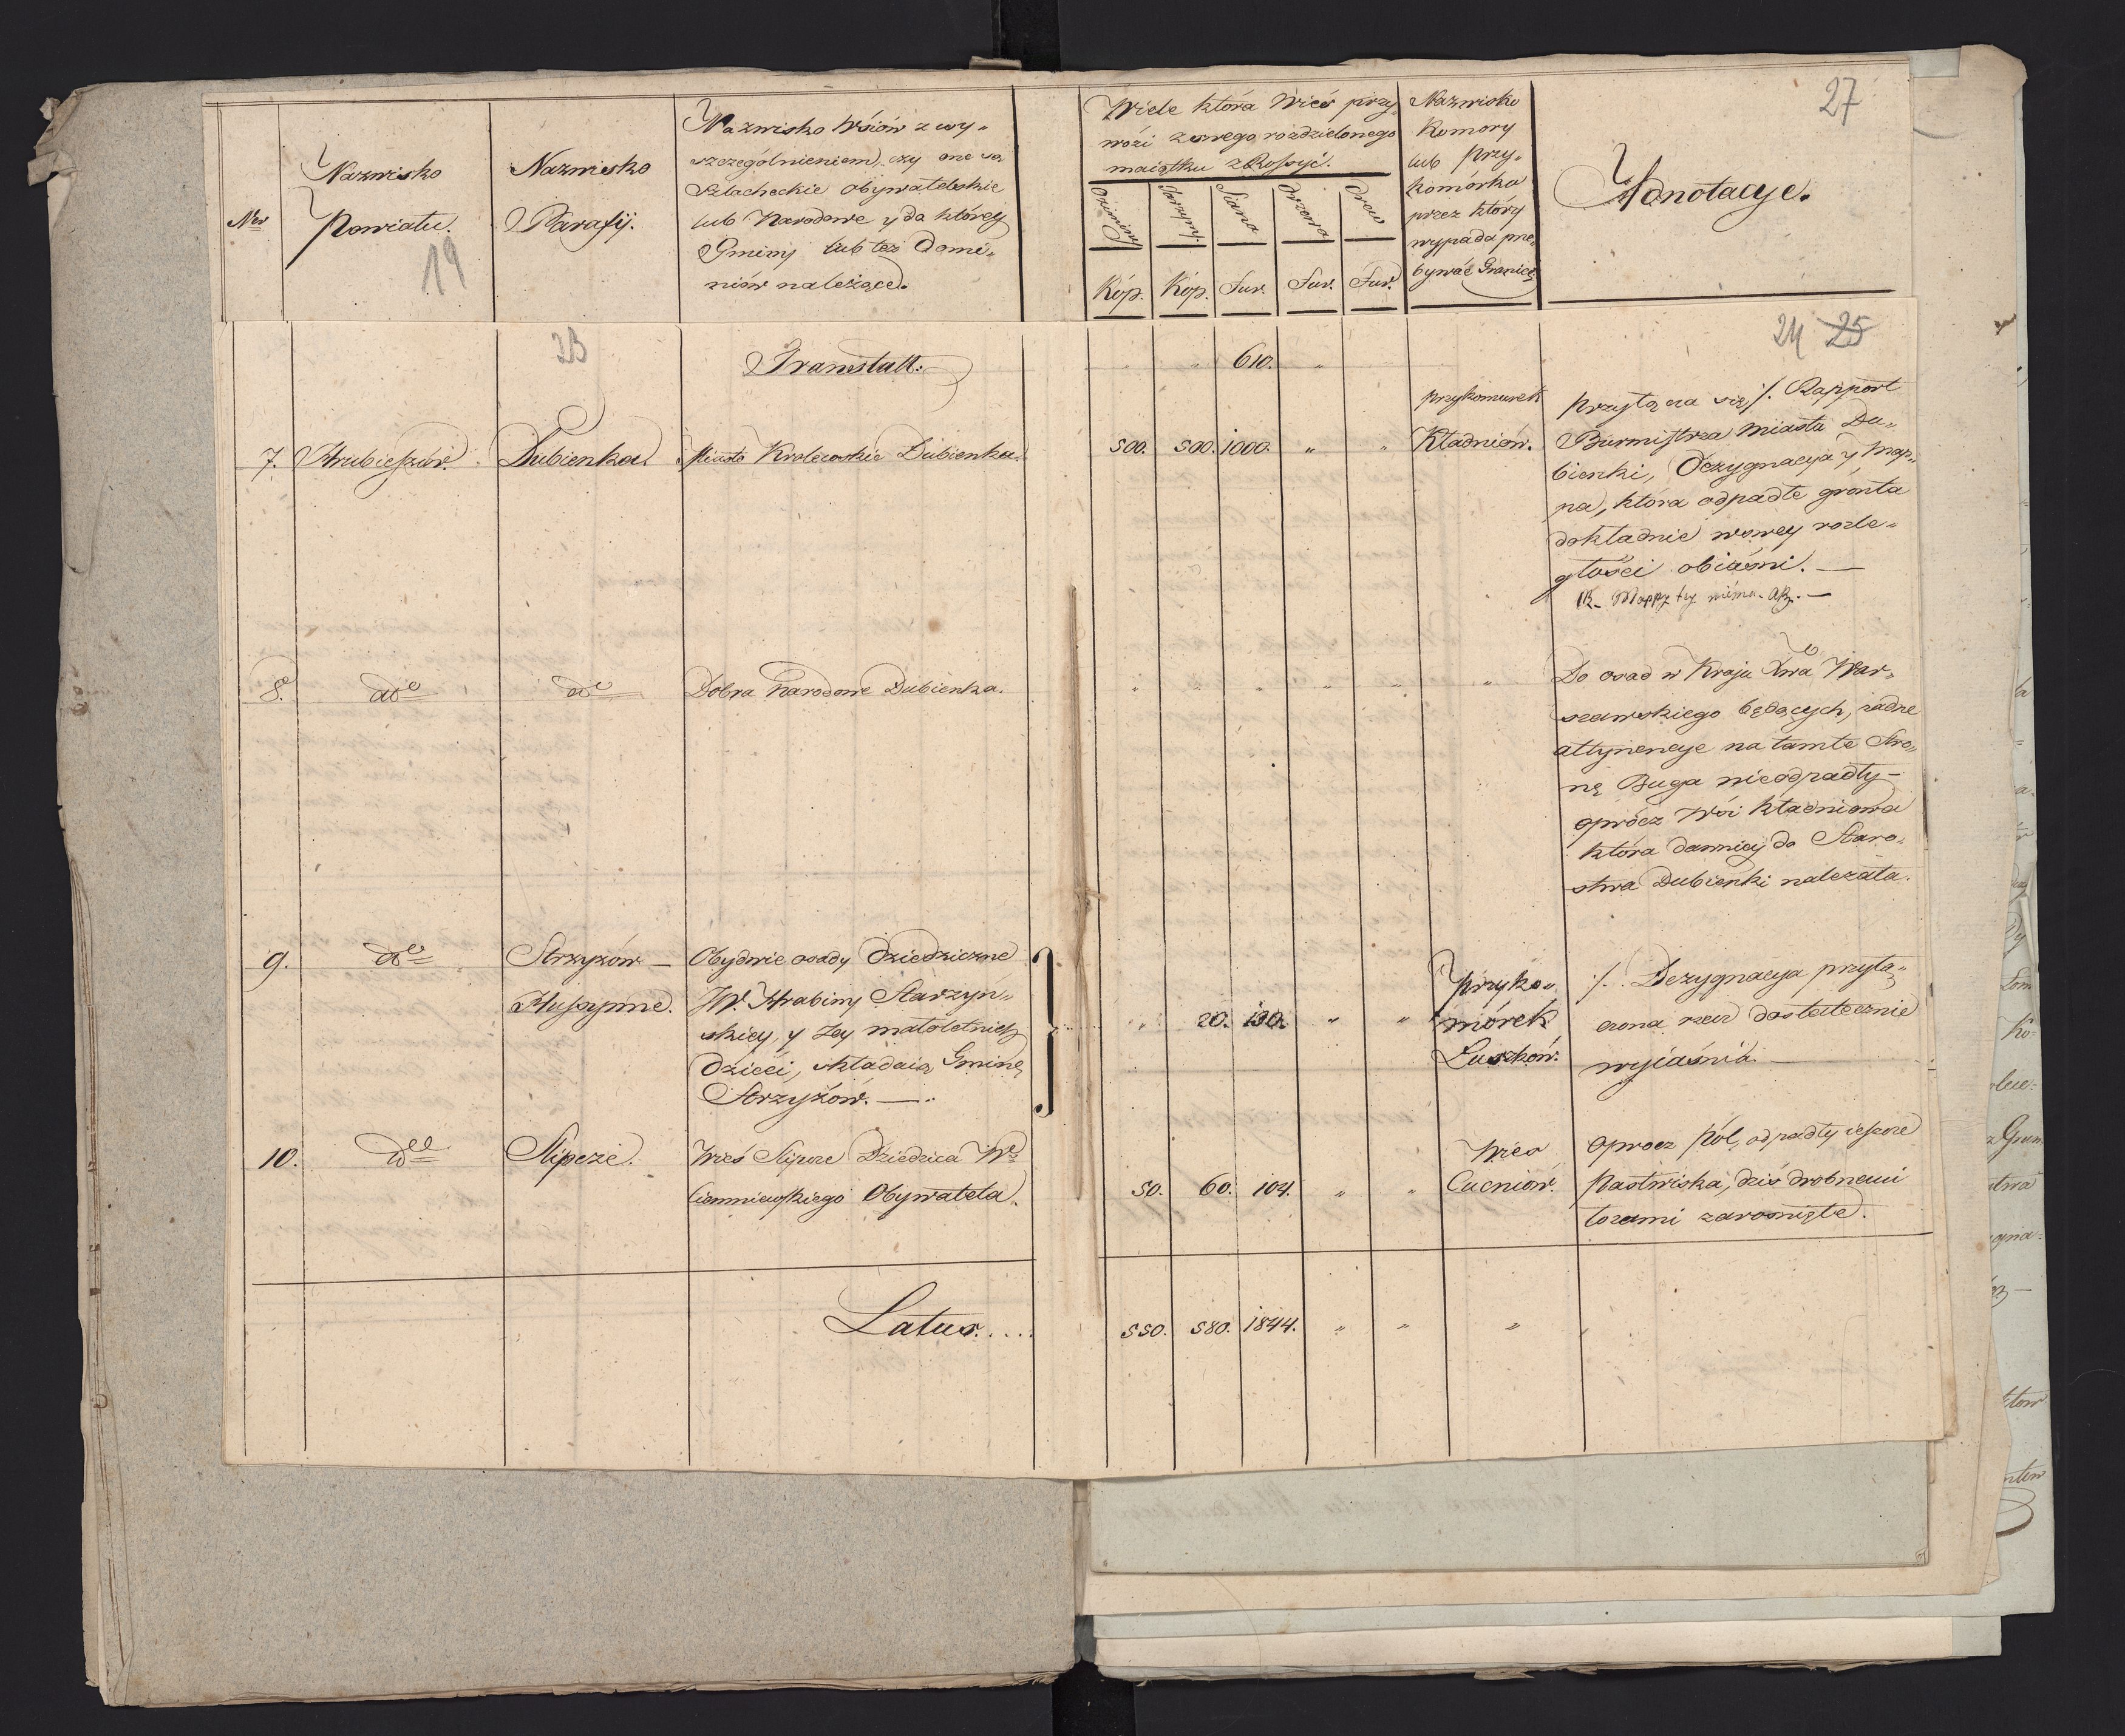 27
Nro
Nazwisko
Powiatu.
19
Nazwisko
Parafij.
Nazwisko Wsiów z wy„
szczególnieniem, czy one są
Szlacheckie obywatelskie
lub Narodowe y do którey
Gminy lub też Domi„
niów należące.
Wiele która Wieś przy„
wozi z swego rozdzielonego
maiątku z Rossyi.
Oziminy
Jarzyny
Siana
Drzewa
Drew
Kop. Kop. Fur. Fur. Fur.
Nazwisko
Komory
lub Przy„
komórka
przez który
wypada prze„
bywać Granicę
Adnotacye.
23
24 25
Transtatt: „ „ 610. „
7. Hrubieszów. Dubienka. Miasto Krolewskie Dubienka. 500. 500. 1000. „ „
przykomurek
Kładniów.
Przyłącza się ./. Rapport
Burmistrza Miasta Du„
bienki, Dezygnacya y Map„
pa, która odpadłe gronta
dokładnie wowey rozle„
głości obiaśni. —
NB. Mappy tey niema.
8. dto dto Dobra Narodowe Dubienka. „ „ „ „ „ „
Do osad w Kraju Xwa War„
szawskiego będących, żadne
attynencye na tamtę Stro„
nę Buga nieodpadły —
oprócz Wsi Kładniowa
która dawniey do Staro„
stwa Dubienki należała.
9. dto Strzyżów —
Hussynne.
Obydwie osady Dziedziczne
JW. Hrabiny Starzyn„
skiey, y Jey małoletnich
Dzieci, składaią Gminę
Strzyżów. —
„ 20. 130. „ „
Przyko„
mórek
Łuszków.
./. Dezygnacya przyłą„
czona rzecz dostatecznie
wyiaśnia
10. dto Slipcze. Wieś Slipcze Dziedzica We
Ciemniewskiego Obywatela.
50. 60. 104. „ „
Wieś
Cucniów.
Oprocz Pól, odpadły ieszcze
Pastwiska, dziś drobnemi
łozami zarosnięte.
Latus.... 550. 580. 1844. „ „ „